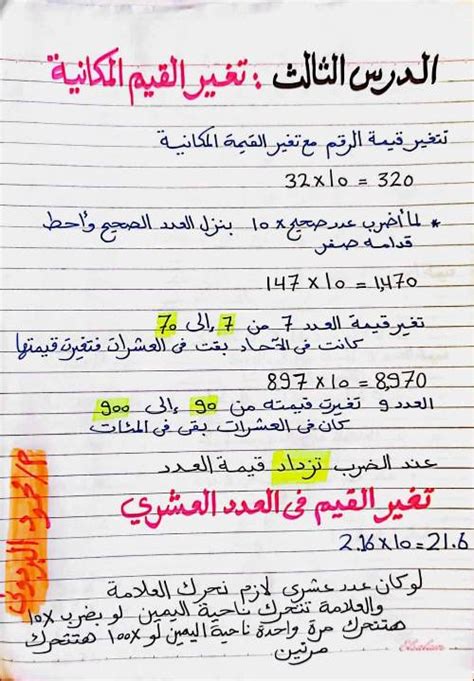 الدرس الثالث : تغير القيم المكانية
تتغير قيمة الرقم مع تغير القيمة المكانية
32 x 10 = 320
* لما أضرب عدد صحيح x 10 بنزل العدد الصحيح وأحط
قدامه صفر
147 x 10 = 1,470
تغير قيمة العدد 7 من 7 إلى 70
كانت فى الآحاد بقت فى العشرات فتغيرت قيمتها
897 x 10 = 8,970
العدد 9 تغيرت قيمته من 90 إلى 900
كان فى العشرات بقى فى المئات
عند الضرب تزداد قيمة العدد
تغير القيم فى العدد العشري
2.16 x 10 = 21.6
لو كان عدد عشري لازم نحرك العلامة
والعلامة تتحرك ناحية اليمين لو بضرب 10x
هتتحرك مرة واحدة ناحية اليمين لو 100x هتتحرك
مرتين